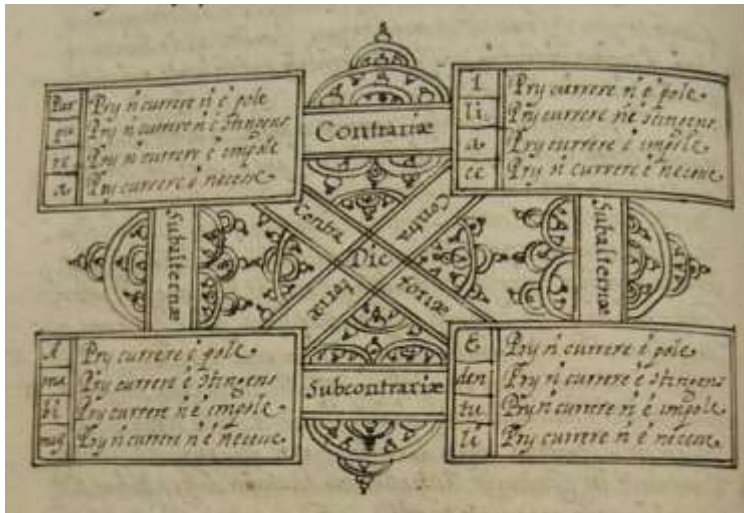 Pur Pry ñ currere ñ é pole
pu Pry ñ currere ñ é ɔtingens
re Pry ñ currere é impole
a Pry currere é necesse
Contrariæ
I Pry currere ñ é pole
li Pry currere ñ é ɔtingens
a Pry currere é impole
ce Pry ñ currere é necesse
Subalternæ
Contra
Contra
Dic
toriæ
toriæ
Subalternæ
A Pry currere é pole
ma Pry currere é ɔtingens
bi Pry currere ñ é impole
Pry ñ currere ñ é necesse
Subcontrariæ
E Pry ñ currere é pole
den Pry ñ currere é ɔtingens
tu Pry ñ currere ñ é impole
li Pry currere ñ é necesse